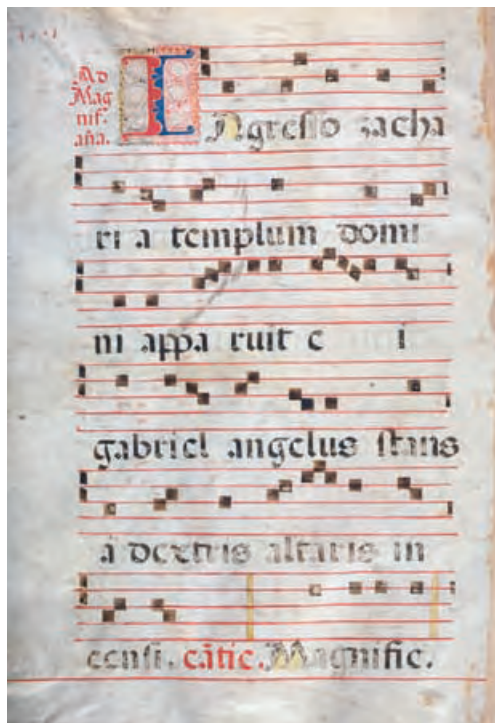 Ad
Mag
nif.
aña.
INgresso zacha
ri a templum domi
ni appa ruit e i
gabriel angelus stans
a dextris altaris in
censi. cãtic. Magnific.